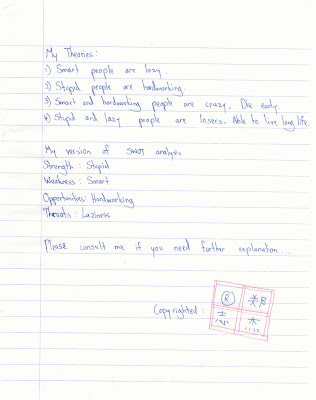 My Theories:
1) Smart people are lazy.
2) Stupid people are hardworking.
3) Smart and hardworking people are crazy. Die early.
4) Stpid and lazy people are losers. Able to live long life.
My version of SWOT analysis
Strength : Stupid
Weakness : Smart
Opportunities: Hardworking
Threats : Laziness
Please consult me if you need further explanation...
Copyrighted :
®